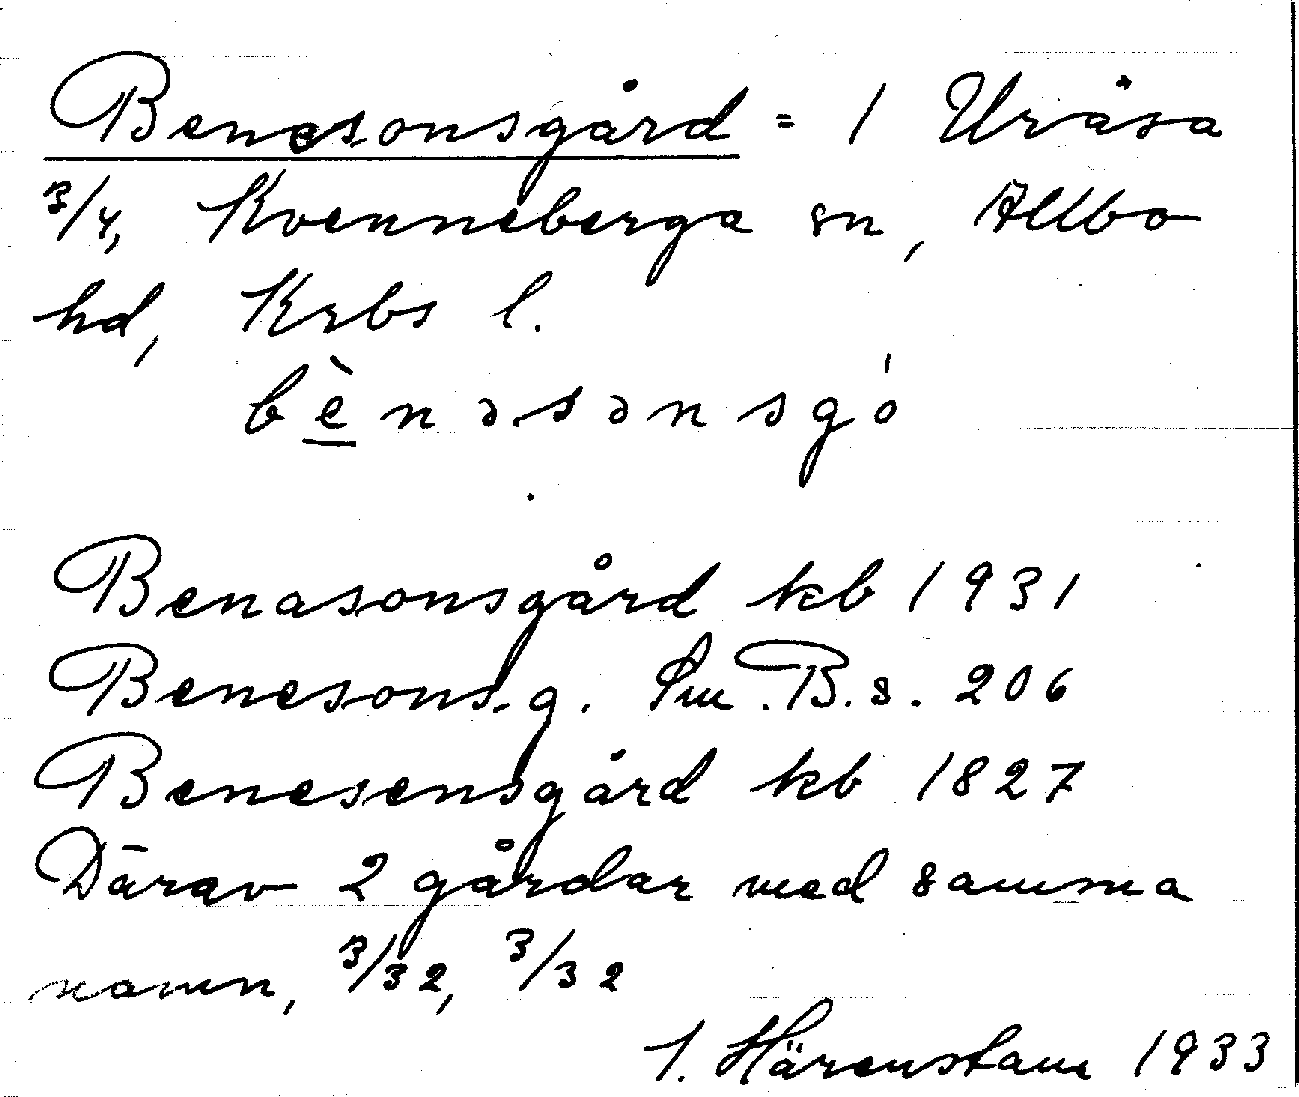 Benesonsgård = 1 Uråsa
3/4, Kvenneberga sn, Allbo
hd, Krbs l.
bènəsənsgó
Benasonsgård kb 1931
Benesons.g. Sm.B.s. 206
Benesensgård kb 1827
Därav 2 gårdar med samma
namn, 3/32, 3/32
I. Härenstam 1933